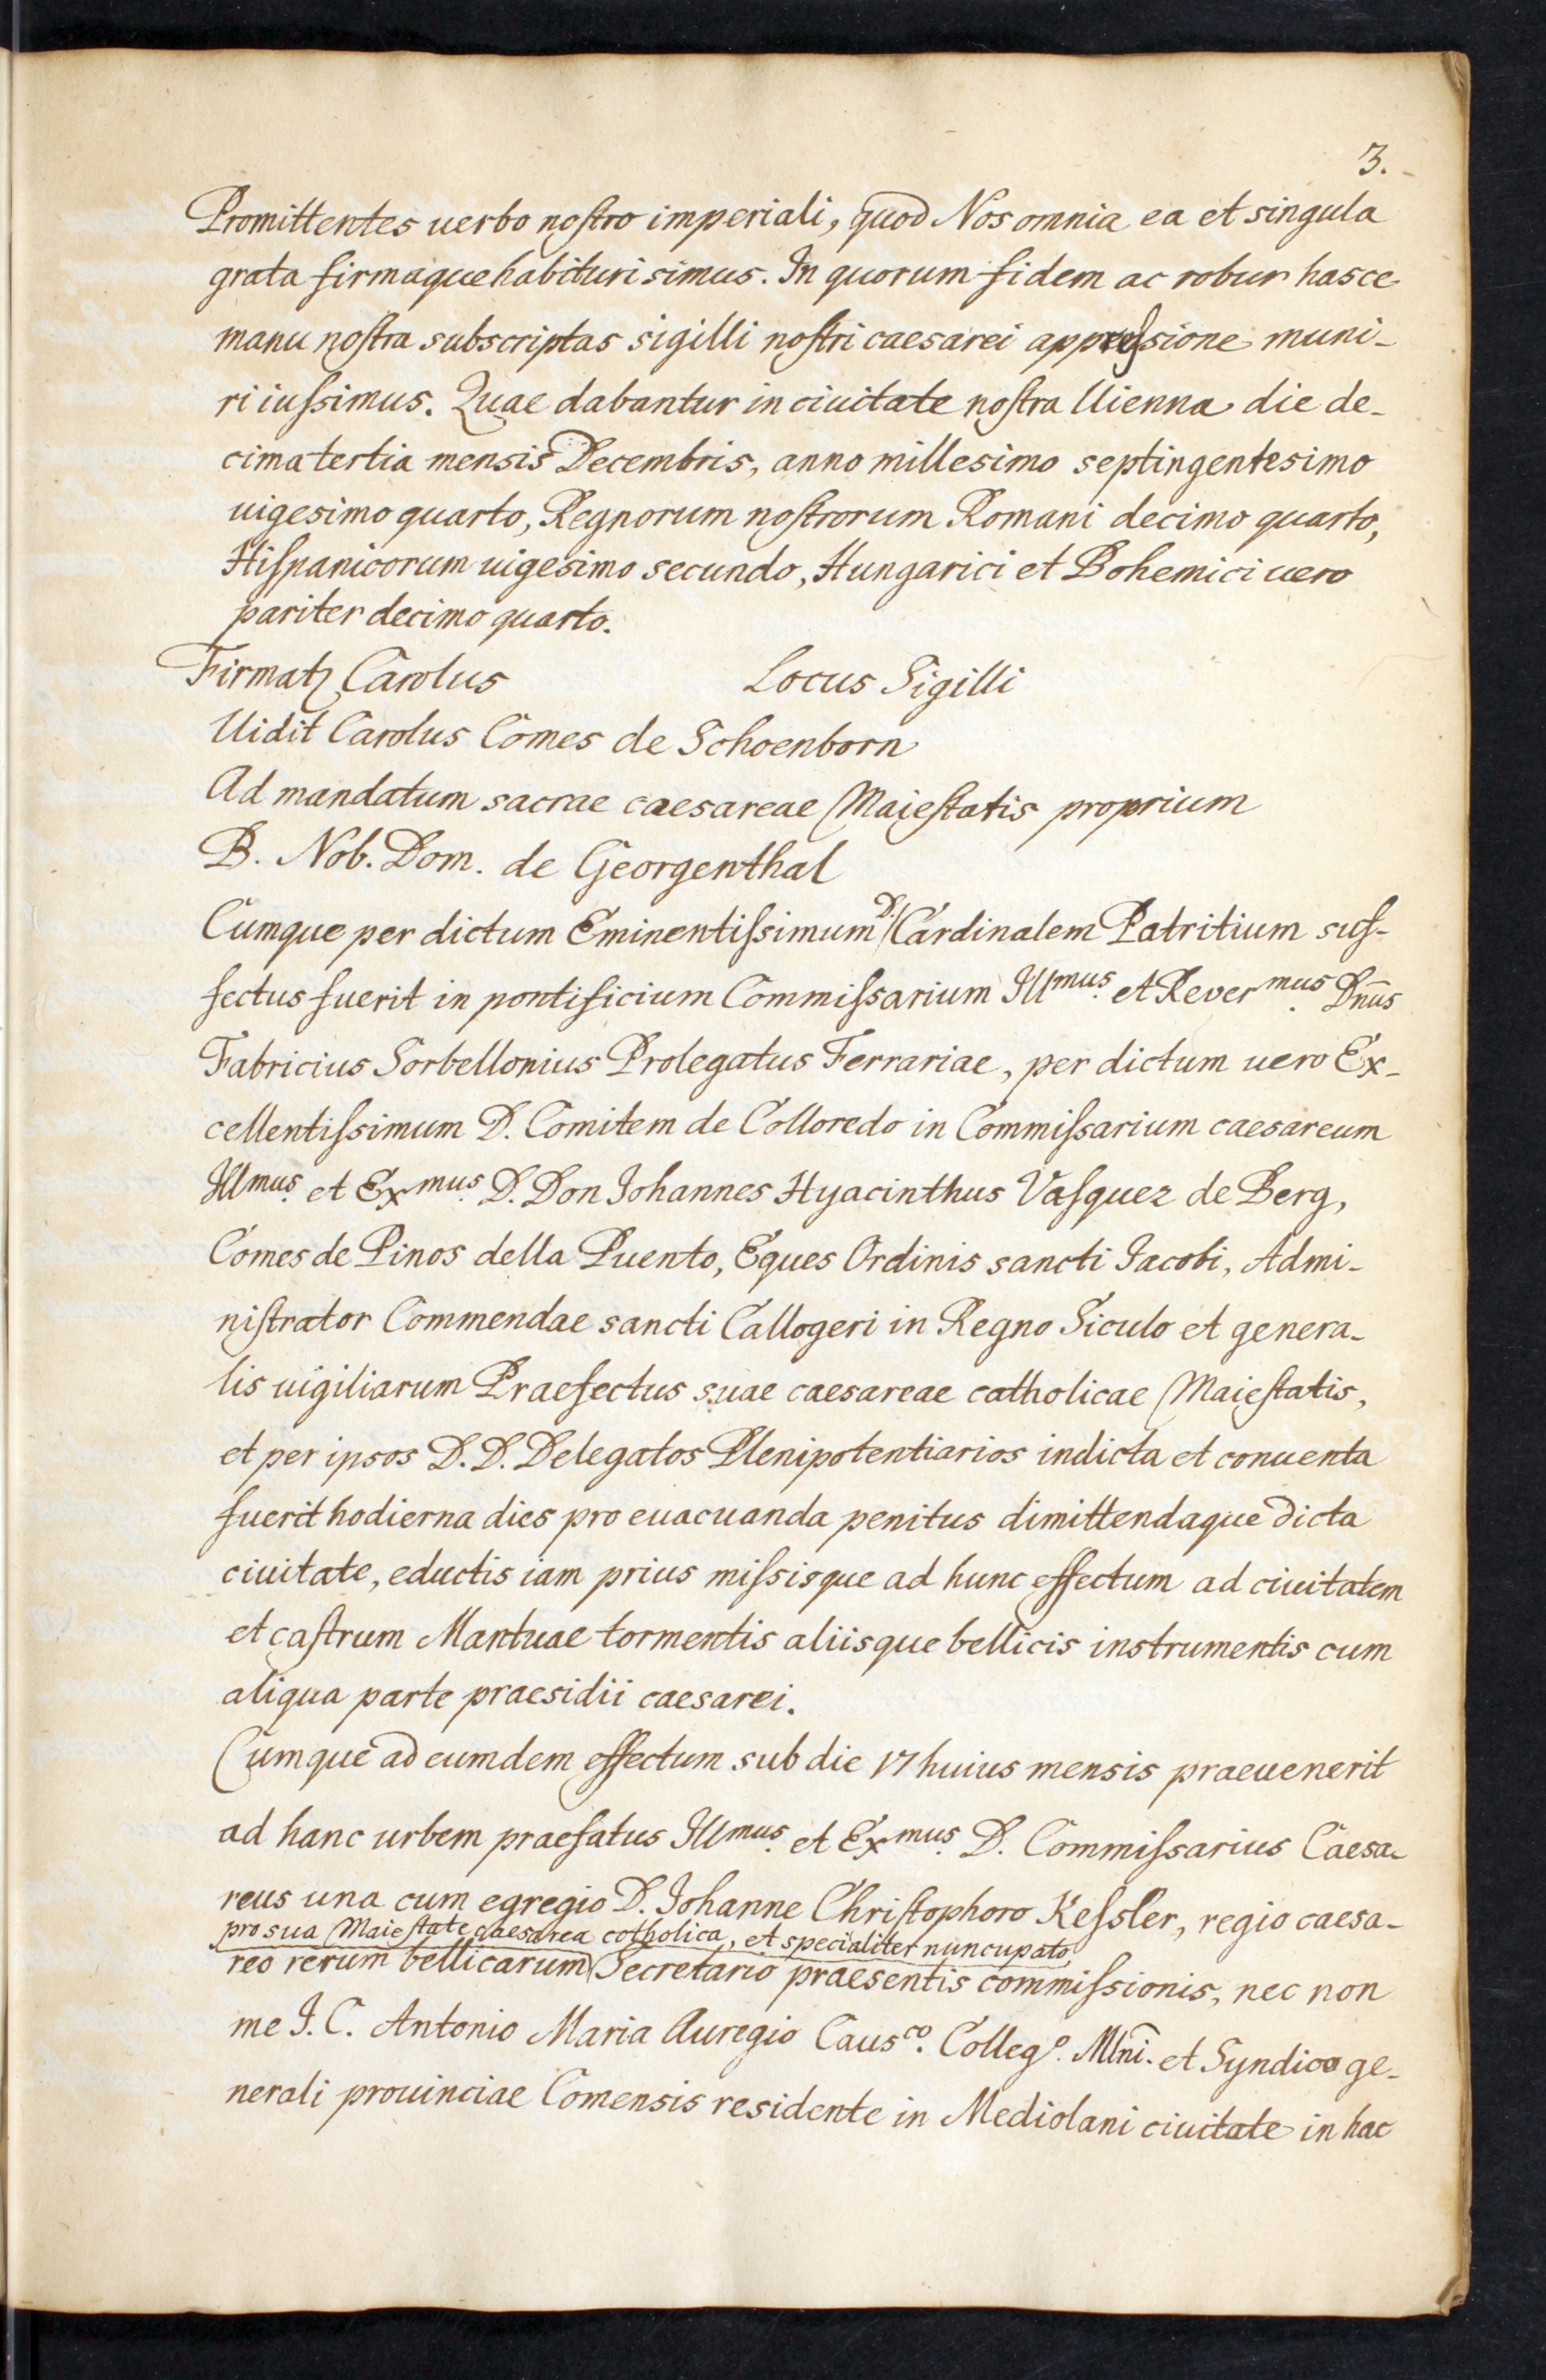 3.
Promittentes uerbo nostro imperiali, quod Nos omnia ea et singula
grata firmaque habituri simus. In quorum fidem ac robur hasce
manu nostra subscriptas sigilli nostri caesarei appressione muni-
ri iussimus. Quae dabantur in ciuitate nostra Uienna die de-
cimatertia mensis Decembris, anno millesimo septingentesimo
uigesimo quarto, Regnorum nostrorum Romani decimo quarto,
Hispanicorum uigesimo secundo, Hungarici et Bohemici uero
pariter decimo quarto.
Firmatʒ Carolus Locus Sigilli
Uidit Carolus Comes de Schoenborn
Ad mandatum sacrae caesareae Maiestatis proprium
B. Nob. Dom. de Georgenthal
Cumque per dictum Eminentissimum D. Cardinalem Patritium suf-
fectus fuerit in pontificium Commissarium Illmus. et Revermus. Dnūs
Fabricius Sorbellonius Prolegatus Ferrariae, per dictum uero Ex-
cellentissimum D. Comitem de Colloredo in Commissarium caesareum
Illmus. et Exmus. D. Don Johannes Hyacinthus Vasquez de Berg,
Comes de Pinos della Puento, Eques Ordinis sancti Jacobi, Admi-
nistrator Commendae sancti Callogeri in Regno Siculo et genera-
lis uigiliarum Praefectus suae caesareae catholicae Maiestatis,
et per ipsos D. D. Delegatos Plenipotentiarios indicta et conuenta
fuerit hodierna dies pro euacuanda penitus dimittendaque dicta
ciuitate, eductis iam prius missisque ad hunc effectum ad ciuitatem
et castrum Mantuae tormentis aliisque bellicis instrumentis cum
aliqua parte praesidii caesarei.
Cumque ad eumdem effectum sub die 17 huius mensis praeuenerit
ad hanc urbem praefatus Illmus. et Exmus. D. Commissarius Caesa-
reus una cum egregio D. Johanne Christophoro Kessler, regio caesa-
pro sua Maiestate caesarea catholica, et specialiter nuncupato
reo rerum bellicarum Secretario praesentis commissionis, nec non
me J. C. Antonio Maria Auregio Causco. Collego. Mlnī. et Syndico ge-
nerali prouinciae Comensis residente in Mediolani ciuitate in hac